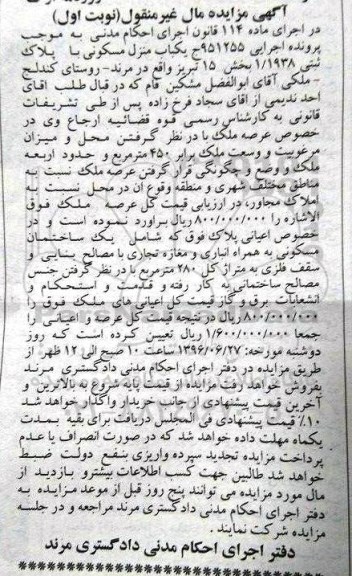 آگهی مزایده مال غیرمنقول(نوبت اول)
در اجرای ماده ۱۱۴ قانون اجرای احکام مدنی به موجب
پرونده اجرایی ۹۵۱۲۵۵ج یکباب منزل مسکونی با پلاک
ثبتی ۱/۱۹۳۸ بخش ۱۵ تبریز واقع در مرند- روستای کندلج
- ملکی آقای ابوالفضل مشگین فام که در قبال طلب آقای
احد ندیمی از آقای سجاد فرخ زاده پس از طی تشریفات
قانونی به کارشناس رسمی قوه قضائیه ارجاع وی در
خصوص عرصه ملک با در نظر گرفتن محل و میزان
مرغوبیت و وسعت ملک برابر ۴۵۰ مترمربع و حدود اربعه
ملک و وضع و چگونگی قرار گرفتن عرصه ملک نسبت به
مناطق مختلف شهری و منطقه وقوع آن در محل نسبت به
املاک مجاور، در ارزیابی قیمت کل عرصه ملک فوق
الاشاره را ۸۰۰/۰۰۰/۰۰۰ ریال برآورد نموده است و در
خصوص اعیانی پلاک فوق که شامل یک ساختمان
مسکونی به همراه انباری و مغازه تجاری با مصالح بنایی و
سقف فلزی به متراژ کل ۲۸۰ مترمربع با در نظر گرفتن جنس
مصالح ساختمانی به کار رفته و قدمت و استحکام و
انشعابات برق و گاز قیمت کل اعیانی های ملک فوق را
۸۰۰/۰۰۰/۰۰۰ ریال در نتیجه قیمت کل عرصه و اعیانی را
جمعا ۱/۶۰۰/۰۰۰/۰۰۰ ریال تعیین کرده است که روز
دوشنبه مورخه: ۱۳۹۶/۰۶/۲۷ ساعت ۱۰ صبح الی ۱۲ ظهر از
طریق مزایده در دفتر اجرای احکام مدنی دادگستری مرند
بفروش خواهد رفت مزایده از قیمت پایه شروع به بالاترین و
آخرین قیمت پیشنهادی از جانب خریدار واگذار خواهد شد
۱۰٪ قیمت پیشنهادی فی المجلس دریافت برای بقیه بمدت
یکماه مهلت داده خواهد شد که در صورت انصراف یا عدم
پرداخت مزایده تجدید سپرده واریزی بنفع دولت ضبط
خواهد شد طالبین جهت کسب اطلاعات بیشترو بازدید از
مال مورد مزایده می توانند پنج روز قبل از موعد مزایده به
دفتر اجرای احکام مدنی دادگستری مرند مراجعه و در جلسه
مزایده شرکت نمایند.
دفتر اجرای احکام مدنی دادگستری مرند